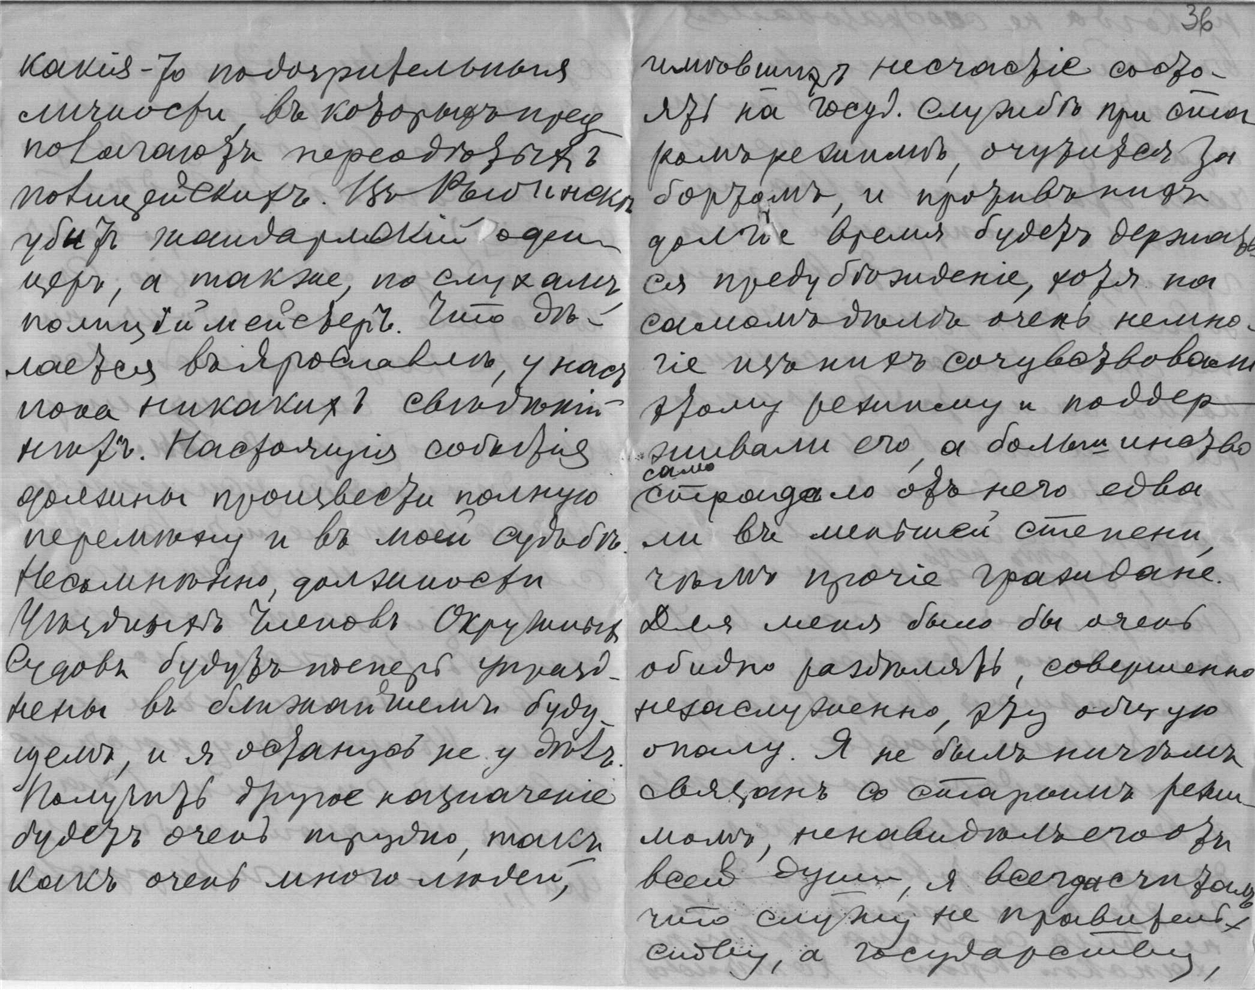 какія-то подозрительныя
личности, въ которыхъ пред
полагаютъ переодѣтыхъ
полицейскихъ. Въ Рыбинскѣ
убитъ жандармскій офи-
церъ, а также, по слухамъ,
полиціймейстеръ. Что дѣ-
лается въ Ярославлѣ, у насъ
пока никакихъ свѣдѣній
нѣтъ. Настоящія событія
должны произвести полную
перемѣну и въ моей судьбѣ.
Несомнѣнно, должности
Уѣздныхъ Членовъ Окружныхъ
Судовъ будутъ теперь упразд-
нены въ ближайшемъ буду-
щемъ, и я останусь не у дѣлъ.
Получить другое назначеніе
будетъ очень трудно, такъ
какъ очень много людей,
36
имѣвшихъ несчастіе состо-
ять на госуд. службѣ при ста
ромъ режимѣ, очутится за
бортомъ, и противъ нихъ
долгое время будетъ держать
ся предубѣжденіе, хотя на
самомъ дѣлѣ очень немно-
гіе изъ нихъ сочувствовали
этому режиму и поддер-
живали его, а большинство
само
страдало отъ него едва
ли въ меньшей степени,
чѣмъ прочіе граждане.
Для меня было бы очень
обидно раздѣлять, совершенно
незаслуженно, эту общую
опалу. Я не былъ ничѣмъ
связанъ со старымъ режи-
момъ, ненавидѣлъ его отъ
всей души, я всегда считалъ
что служу не правитель-
ству, а государству,